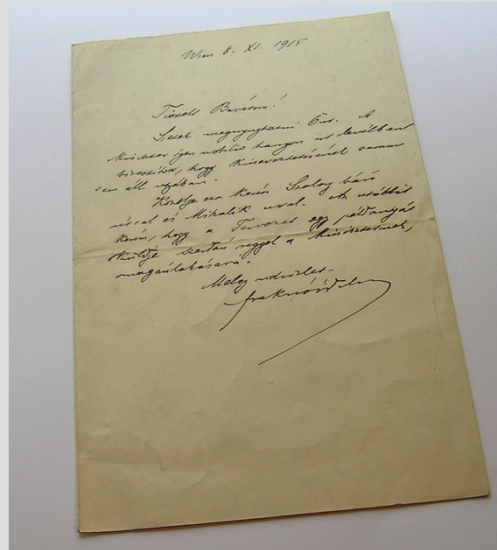 Wien 8. XI. 1915
Tisztelt Barátom!
Siet megnyugtatni Önt. A
Miniszter igen nobilis hangon írt levélben
biztosított, hogy kinevezésének semmi
sem áll útjában.
Közölje ezt kérem Szalay báró
úrral és Mihalik úrral. Az utóbbit
kérem, hogy a Tervezet egy példányát
küldje szerdán reggel a Miniszternek,
magánlakására.
Meleg üdvözlet
Fraknói